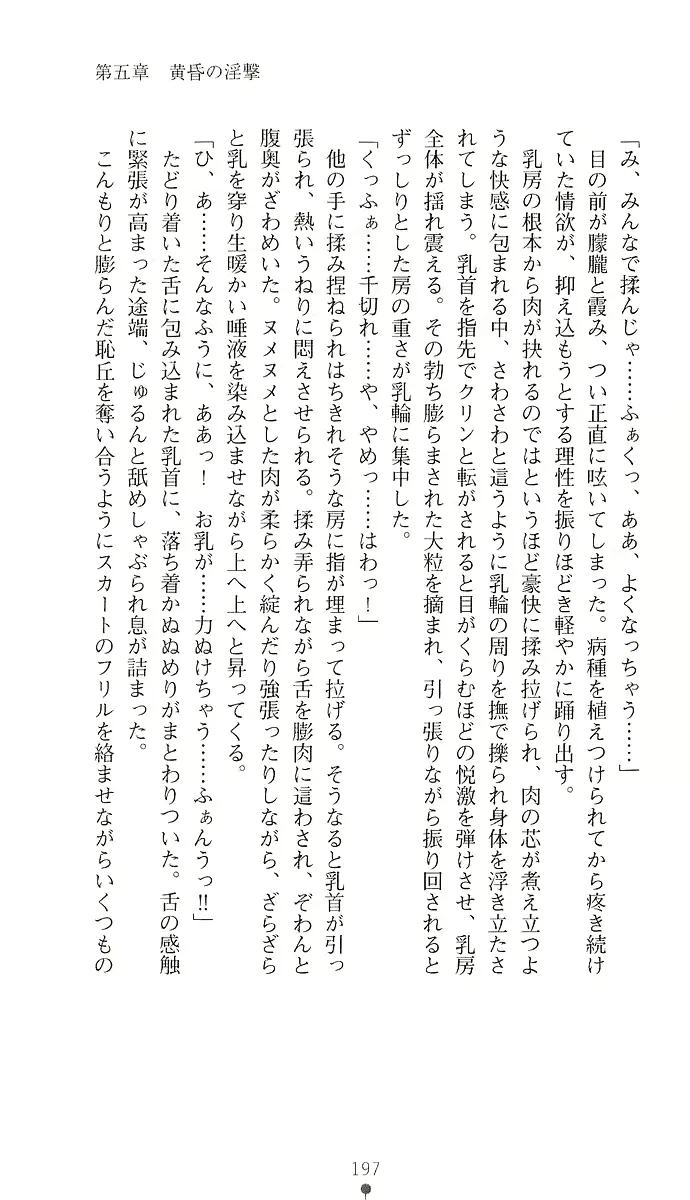 第五章　黄昏の淫撃
「み、みんなで揉んじゃ……ふぁくっ、ああ、よくなっちゃう……」
　目の前が朦朧と霞み、つい正直に呟いてしまった。病種を植えつけられてから疼き続け
ていた情欲が、抑え込もうとする理性を振りほどき軽やかに踊り出す。
　乳房の根本から肉が抉れるのではというほど豪快に揉み拉げられ、肉の芯が煮え立つよ
うな快感に包まれる中、さわさわと這うように乳輪の周りを撫で擽られ身体を浮き立たさ
れてしまう。乳首を指先でクリンと転がされると目がくらむほどの悦激を弾けさせ、乳房
全体が揺れ震える。その勃ち膨らまされた大粒を摘まれ、引っ張りながら振り回されると
ずっしりとした房の重さが乳輪に集中した。
「くっふぁ……千切れ……や、やめっ……はわっ！」
　他の手に揉み捏ねられはちきれそうな房に指が埋まって拉げる。そうなると乳首が引っ
張られ、熱いうねりに悶えさせられる。揉み弄られながら舌を膨肉に這わされ、ぞわんと
腹奥がざわめいた。ヌメヌメとした肉が柔らかく綻んだり強張ったりしながら、ざらざら
と乳を穿り生暖かい唾液を染み込ませながら上へ上へと昇ってくる。
「ひ、あ……そんなふうに、ああっ！　お乳が……力ぬけちゃう……ふぁんうっ‼」
　たどり着いた舌に包み込まれた乳首に、落ち着かぬぬめりがまとわりついた。舌の感触
に緊張が高まった途端、じゅるんと舐めしゃぶられ息が詰まった。
　こんもりと膨らんだ恥丘を奪い合うようにスカートのフリルを絡ませながらいくつもの
197